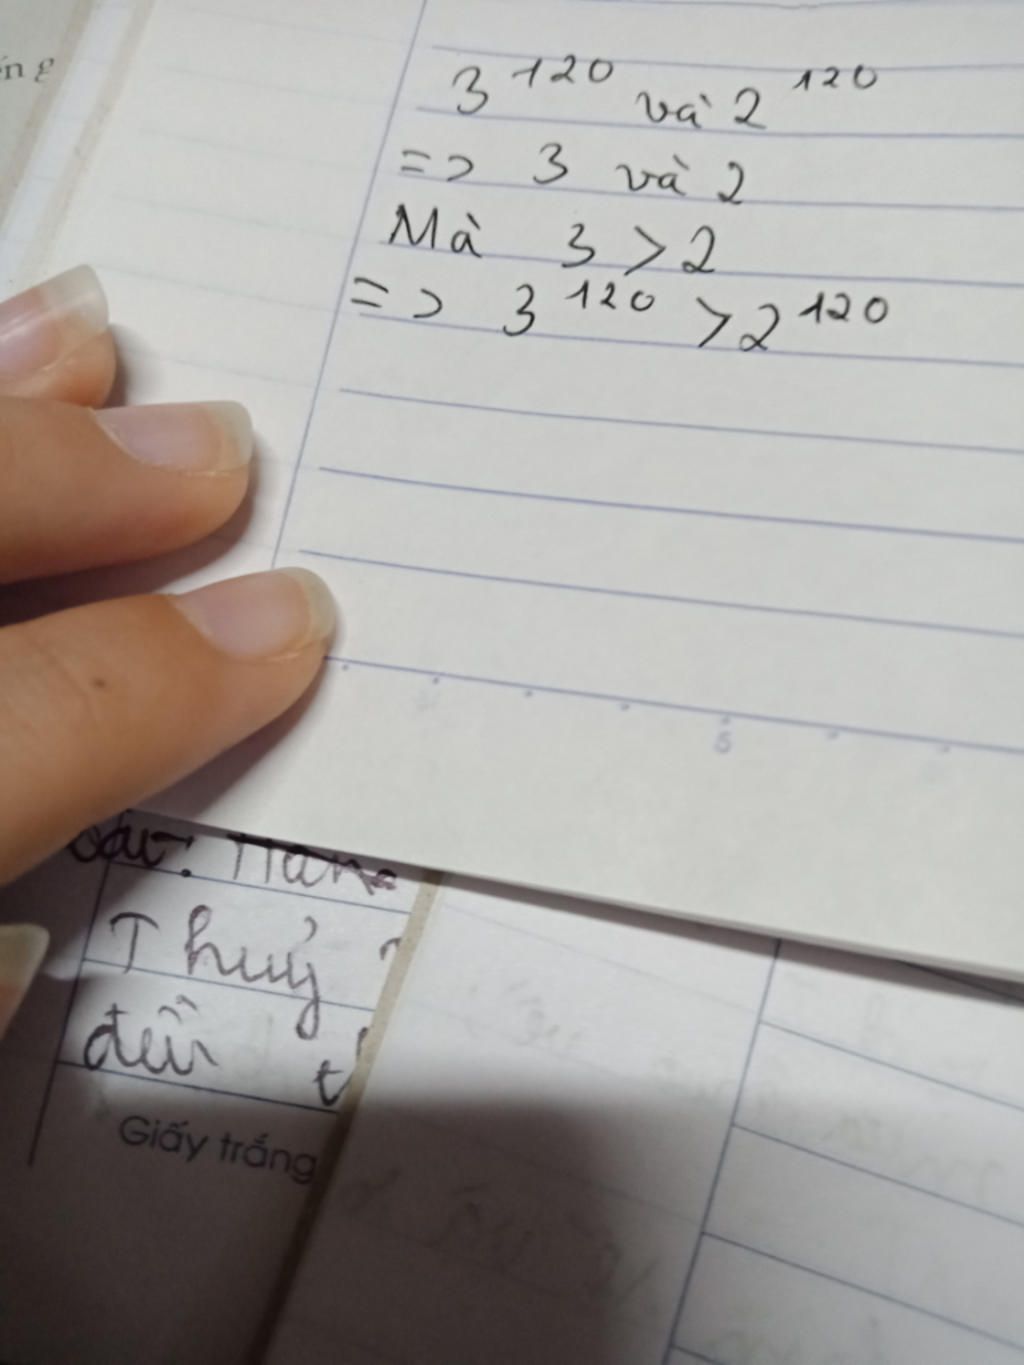 3^120 và 2^120
=> 3 và 2
Mà 3 > 2
=> 3^120 > 2^120
5
Thuỷ
đến
Giấy trắng